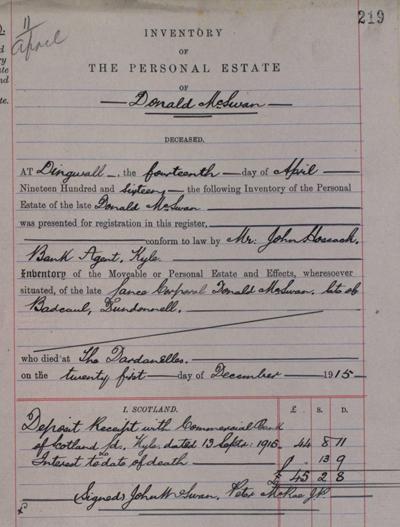 219
11
April
INVENTORY
OF
THE PERSONAL ESTATE
OF
Donald McSwan
DECEASED.
AT Dingwall, the fourteenth day of April
Nineteen Hundred and sixteen the following Inventory of the Personal
Estate of the late Donald McSwan
was presented for registration in this register,
conform to law by Mr. John Hossack,
Bank Agent, Kyle.
Inventory of the Moveable or Personal Estate and Effects, wheresoever
situated, of the late Lance Corporal Donald McSwan, late of
Badcaul, Dundonnell,
who died at The Dardanelles.
on the twenty first day of December 1915.
I. SCOTLAND. £ S. D.
Deposit Receipt with Commercial Bank
of Scotland Ld. Kyle, dated 13 Septr. 1915. 44 8 11
Interest to date of death 13 9
£ 45 2 8
(Signed) John McSwan, Peter McRae J.P.
£